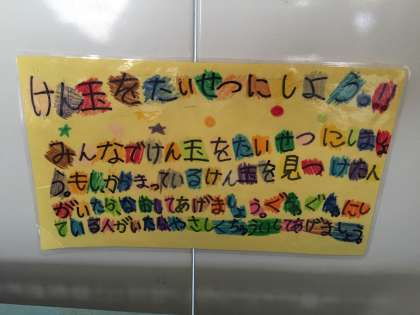 けん玉をたいせつにしよう。!!
みんなでけん玉をたいせつにしましょ
う。もし、からまっているけん玉を見つけた人
がいたら、なおしてあげましょう。ぐるぐるにし
ている人がいたら、やさしくちゅういしてあげましょう。